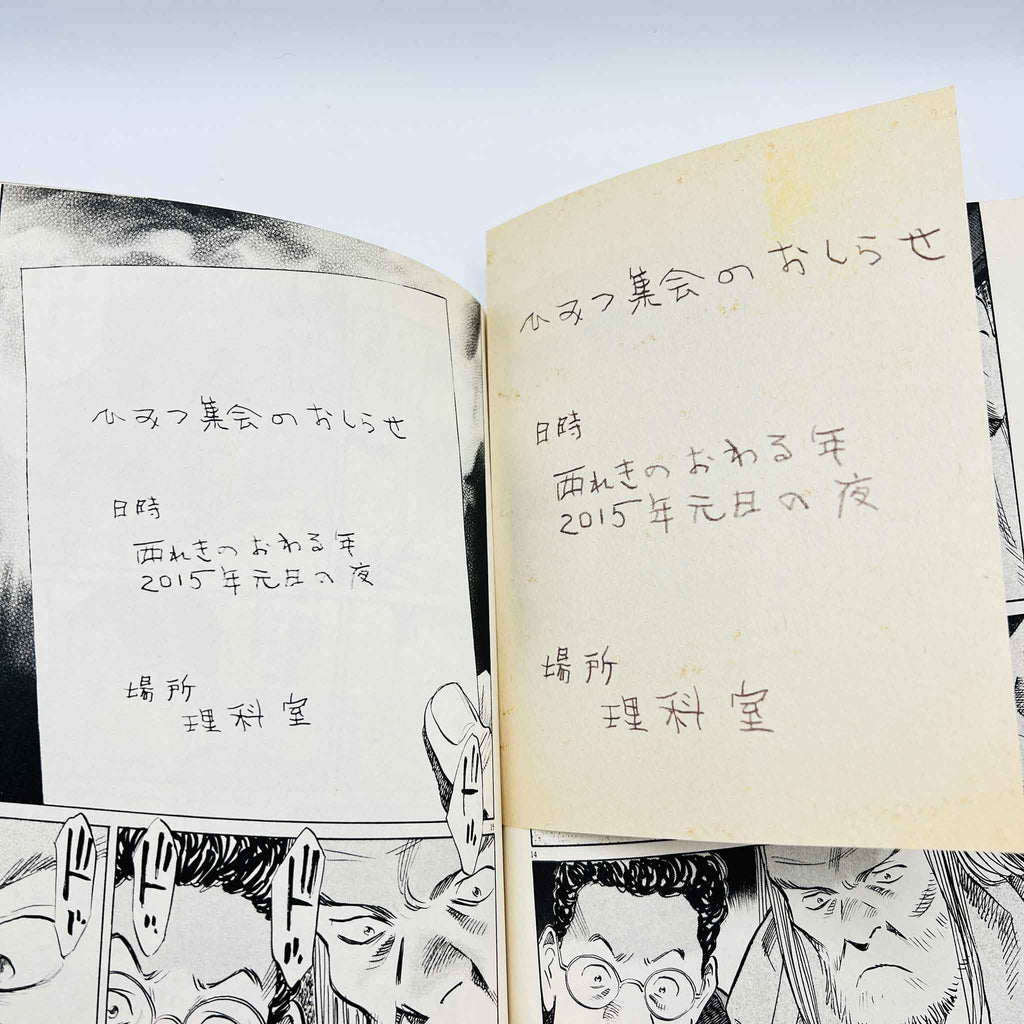 ひみつ集会のおしらせ
日時
西れきのおわる年
2015年元日の夜
場所
理科室
ドドッ
ドドッ
ドドッ
ドドッ
ひみつ集会のおしらせ
日時
西れきのおわる年
2015年元日の夜
場所
理科室
14